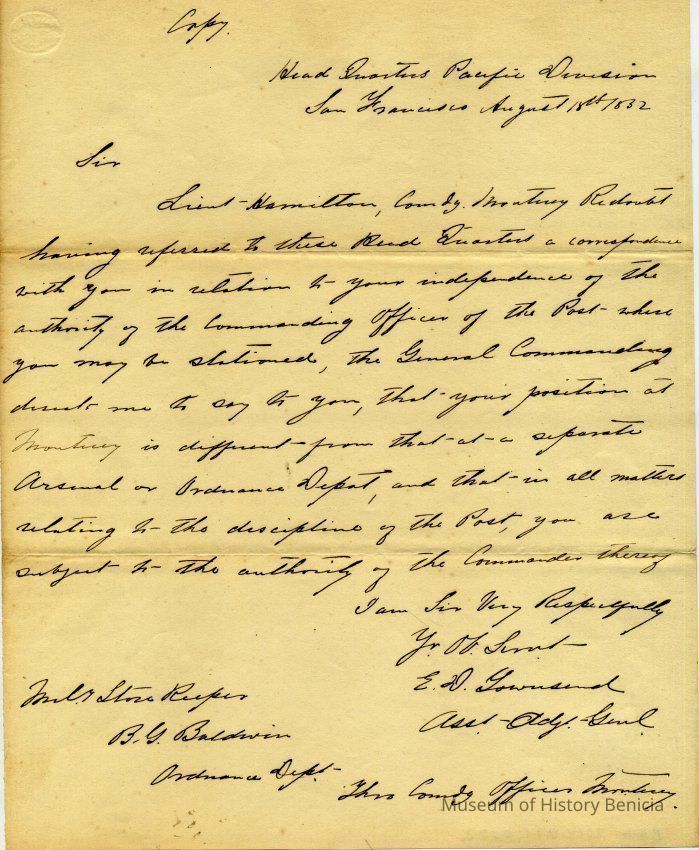 Copy.
Head Quarters Pacific Division
San Francisco August 18th 1852
Sir
Lieut Hamilton, Comdg. Monterey Redoubt
having referred to these Head Quarters a correspondence
with you in relation to your independence of the
authority of the Commanding Officer of the Post where
you may be stationed, the General Commanding
directs me to say to you, that your position at
Monterey is different from that at a separate
Arsenal or Ordnance Depot, and that in all matters
relating to the discipline of the Post, you are
subject to the authority of the Commander thereof
I am Sir Very Respectfully
Yr. Ob. Servt
E. D. Townsend
Asst. Adjt. Genl.
Mily Store Keeper
B. G. Baldwin
Ordnance Dept.
Thro Comdg Officer Monterey.
Museum of History Benicia